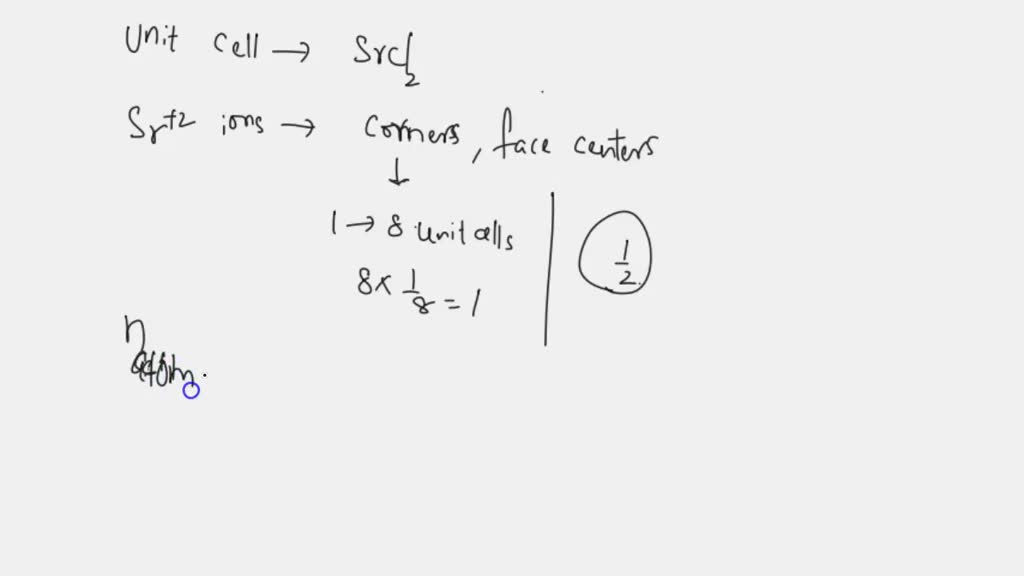 Unit cell → SrCl2
Sr+2 ions → corners, face centers
↓
1 → 8 unit cells
8 x 1/8 = 1
1/2
n